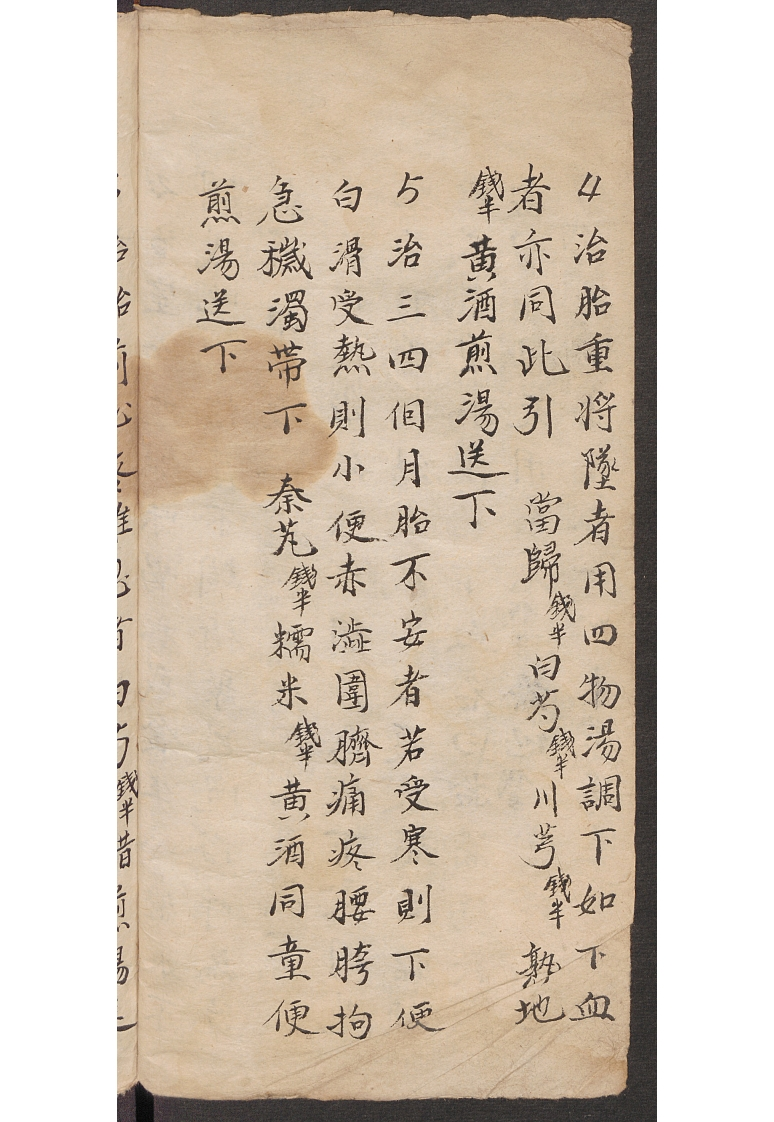 4治胎重將墜者用四物湯調下如下血
者亦同此引 當歸錢半白芍錢半川芎錢半熟地
錢半黃酒煎湯送下
5治三四個月胎不安者若受寒則下便
白滑受熱則小便赤澁圍臍痛疼腰胯拘
急穢濁帶下 秦艽錢半糯米錢半黃酒同童便
煎湯送下